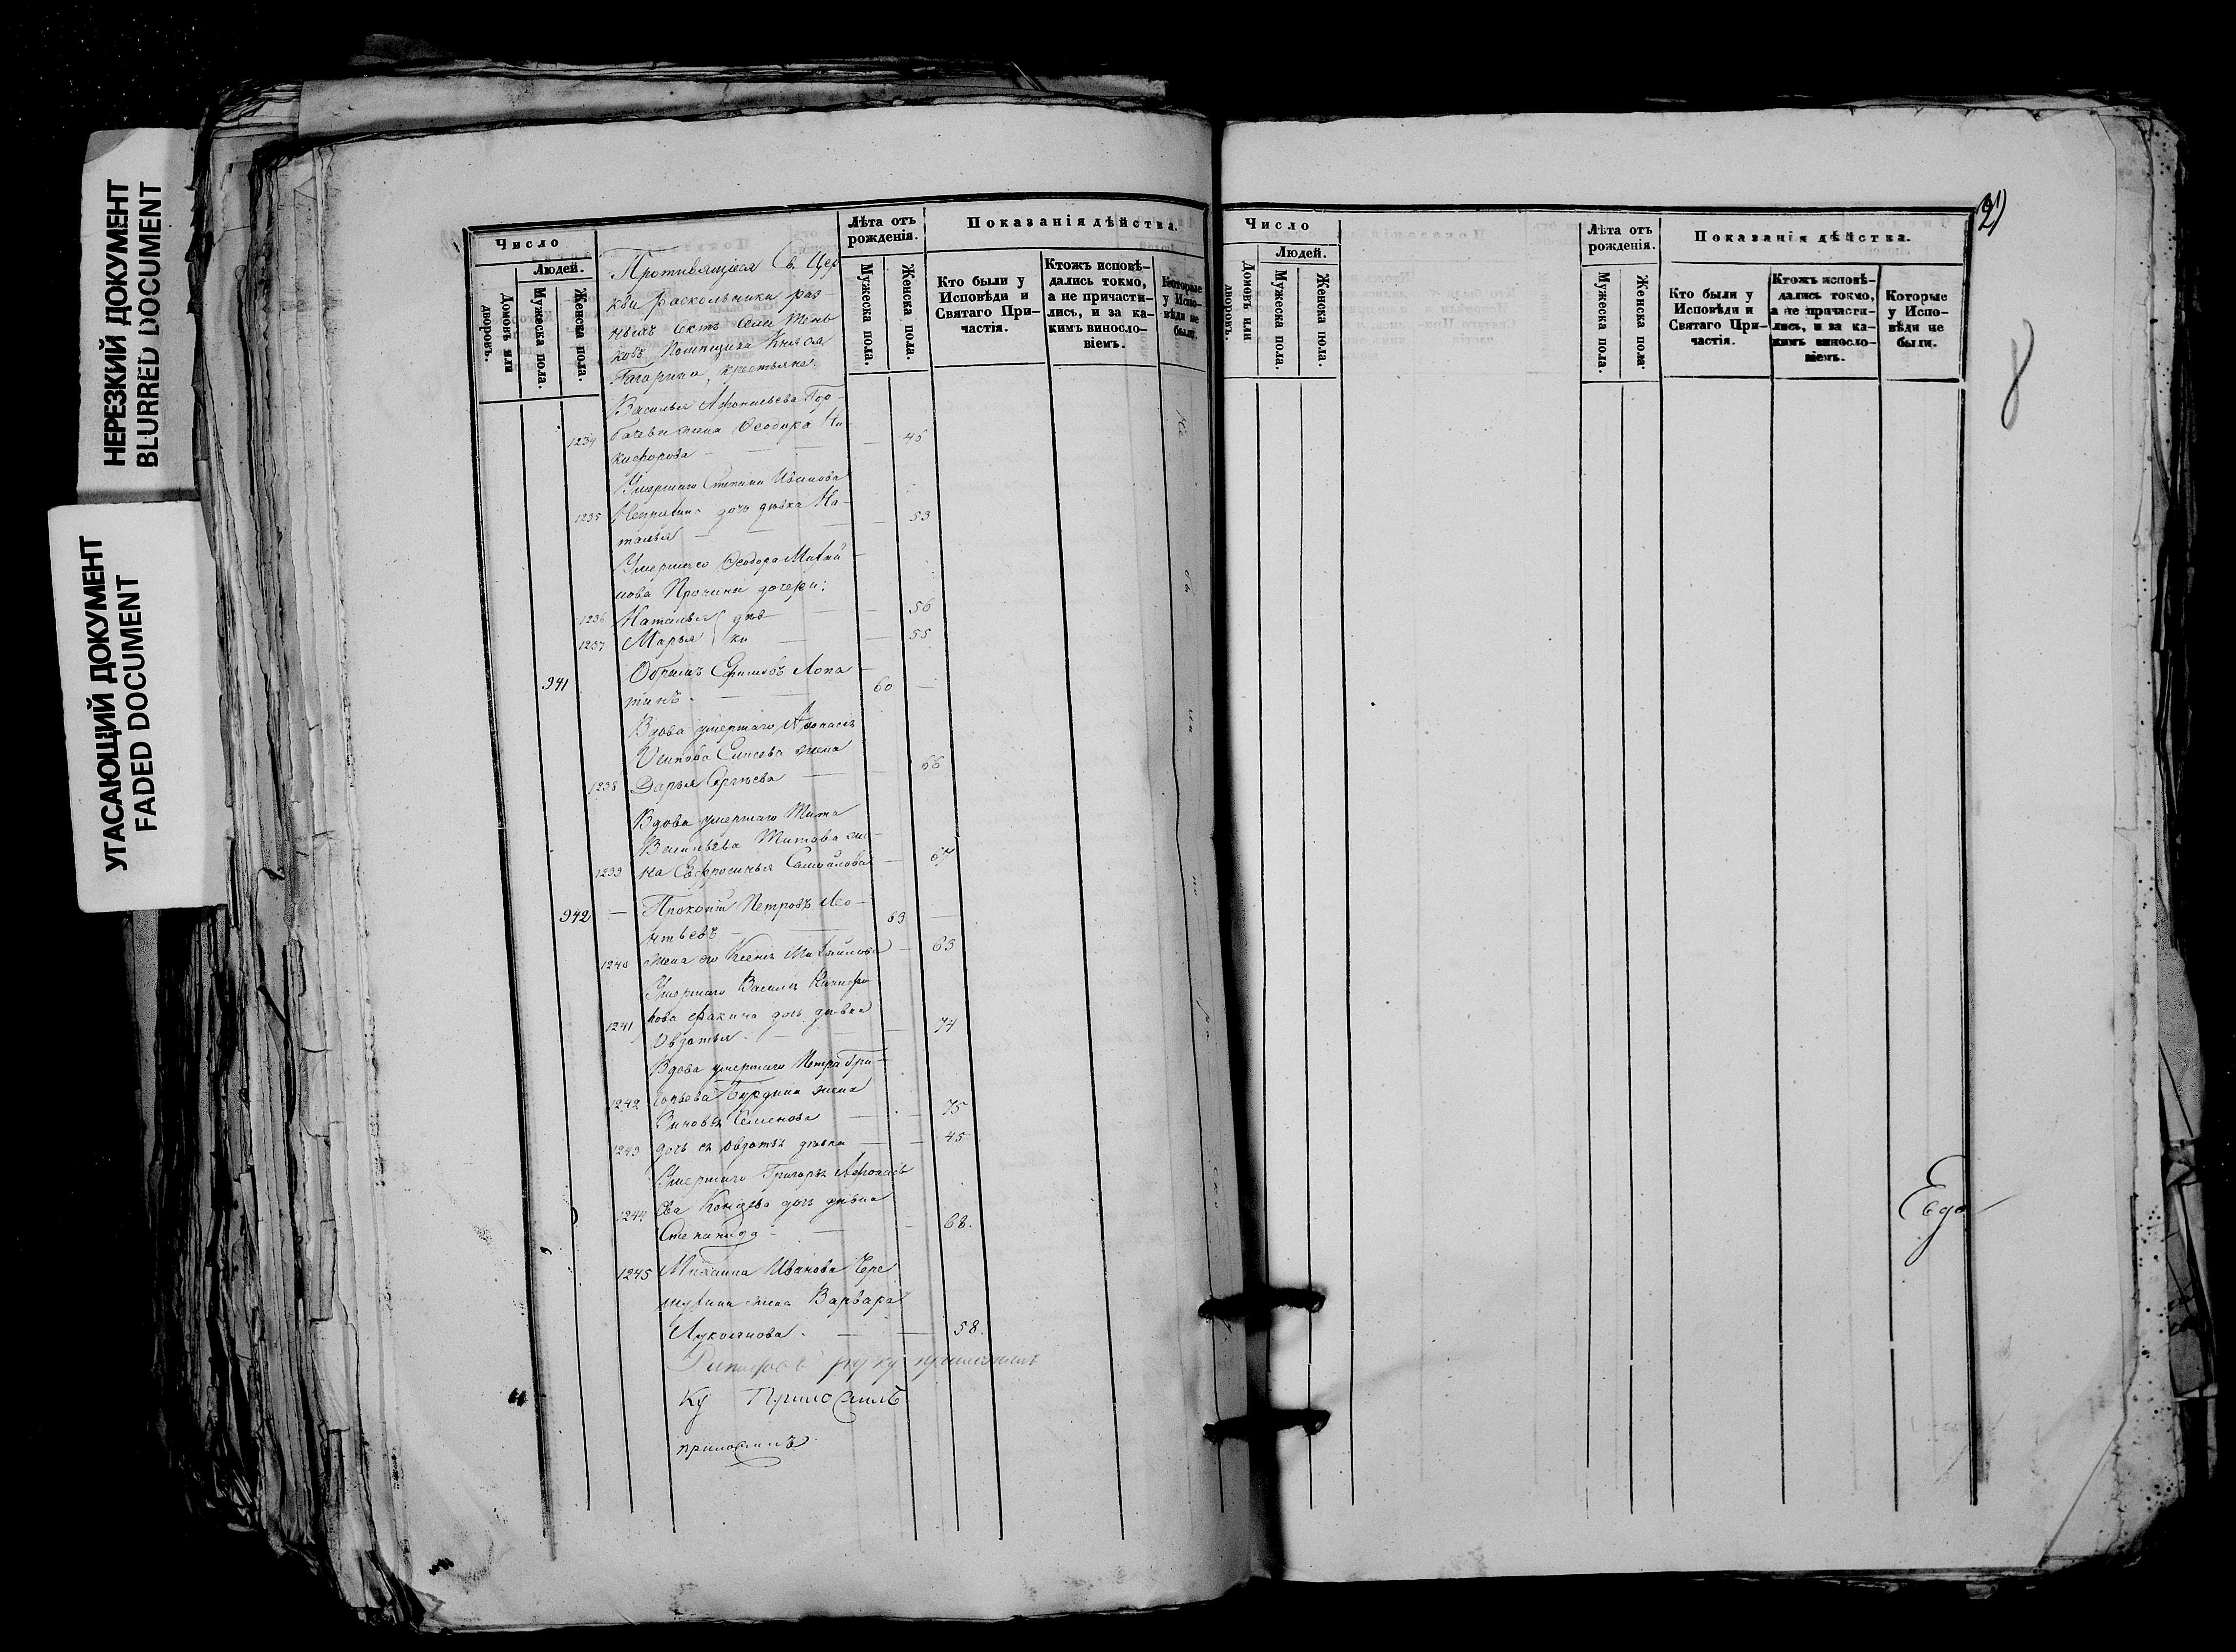 НЕРЕЗКИЙ ДОКУМЕНТ
BLURRED DOCUMENT
УГАСАЮЩИЙ ДОКУМЕНТ
FADED DOCUMENT
Число
Людей.
Домовъ или дворовъ.
Мужеска пола.
Женска пола.
Лѣта отъ рожденія.
Мужеска пола.
Женска пола.
Показанія дѣйства.
Кто были у
Исповѣди и
Святаго При-
частія.
Ктожъ исповѣ-
дались токмо,
а не причасти-
лись, и за ка-
кимъ виносло-
віемъ.
Которые
у Испо-
вѣди не
были.
Противящіеся Св. Цер
кви раскольники раз-
ныхъ сектъ села
Помещика Князя
Гагарина, крестьяне:
Василья Афонасьева Гор-
1234 бачева жена Ѳеодора Ни 45
кифорова
Умершаго Степана Иванова
1235 дочь дѣвка На- 53
талья
Умершаго Ѳеодора Михай
лова дочери:
1236 Наталья дѣв 56
1237 Марья ки 55
941 Ефимовъ Лопа 60
тинъ
Вдова умершаго Афонасья
Осипова Елисева жена
1238 Дарья Сергѣева 66
Вдова умершаго Тита
Васильева Титова же-
1239 на Ефросинья Самойлова 67
942 Прокопій Петровъ Лео- 63
нтьевъ
1240 жена его Ксенья Михайлова 63
Умершаго Василья Никифо
1241 рова дочь дѣвка 74
Овдотья
Вдова умершаго Петра Гри-
1242 горьева Бурдина жена
Зиновья Семенова 75
1243 дочь ея Овдотья дѣвка 45
Умершаго Григорья Афонась
1244 ева дочь дѣвка
Степанида 68.
1245 Михаила Иванова Чере
мухина жена Варвара
Лукоянова 58.
руку приложилъ
ку Приложилъ
приложилъ
Число
Людей.
Домовъ или дворовъ.
Мужеска пола.
Женска пола.
Лѣта отъ рожденія.
Мужеска пола.
Женска пола
Показанія дѣйства.
Кто были у
Исповѣди и
Святаго При-
частія.
Ктожъ исповѣ-
дались токмо,
а не причасти-
лись, и за ка-
кимъ виносло-
віемъ.
Которые
у Испо-
вѣди не
были.
8